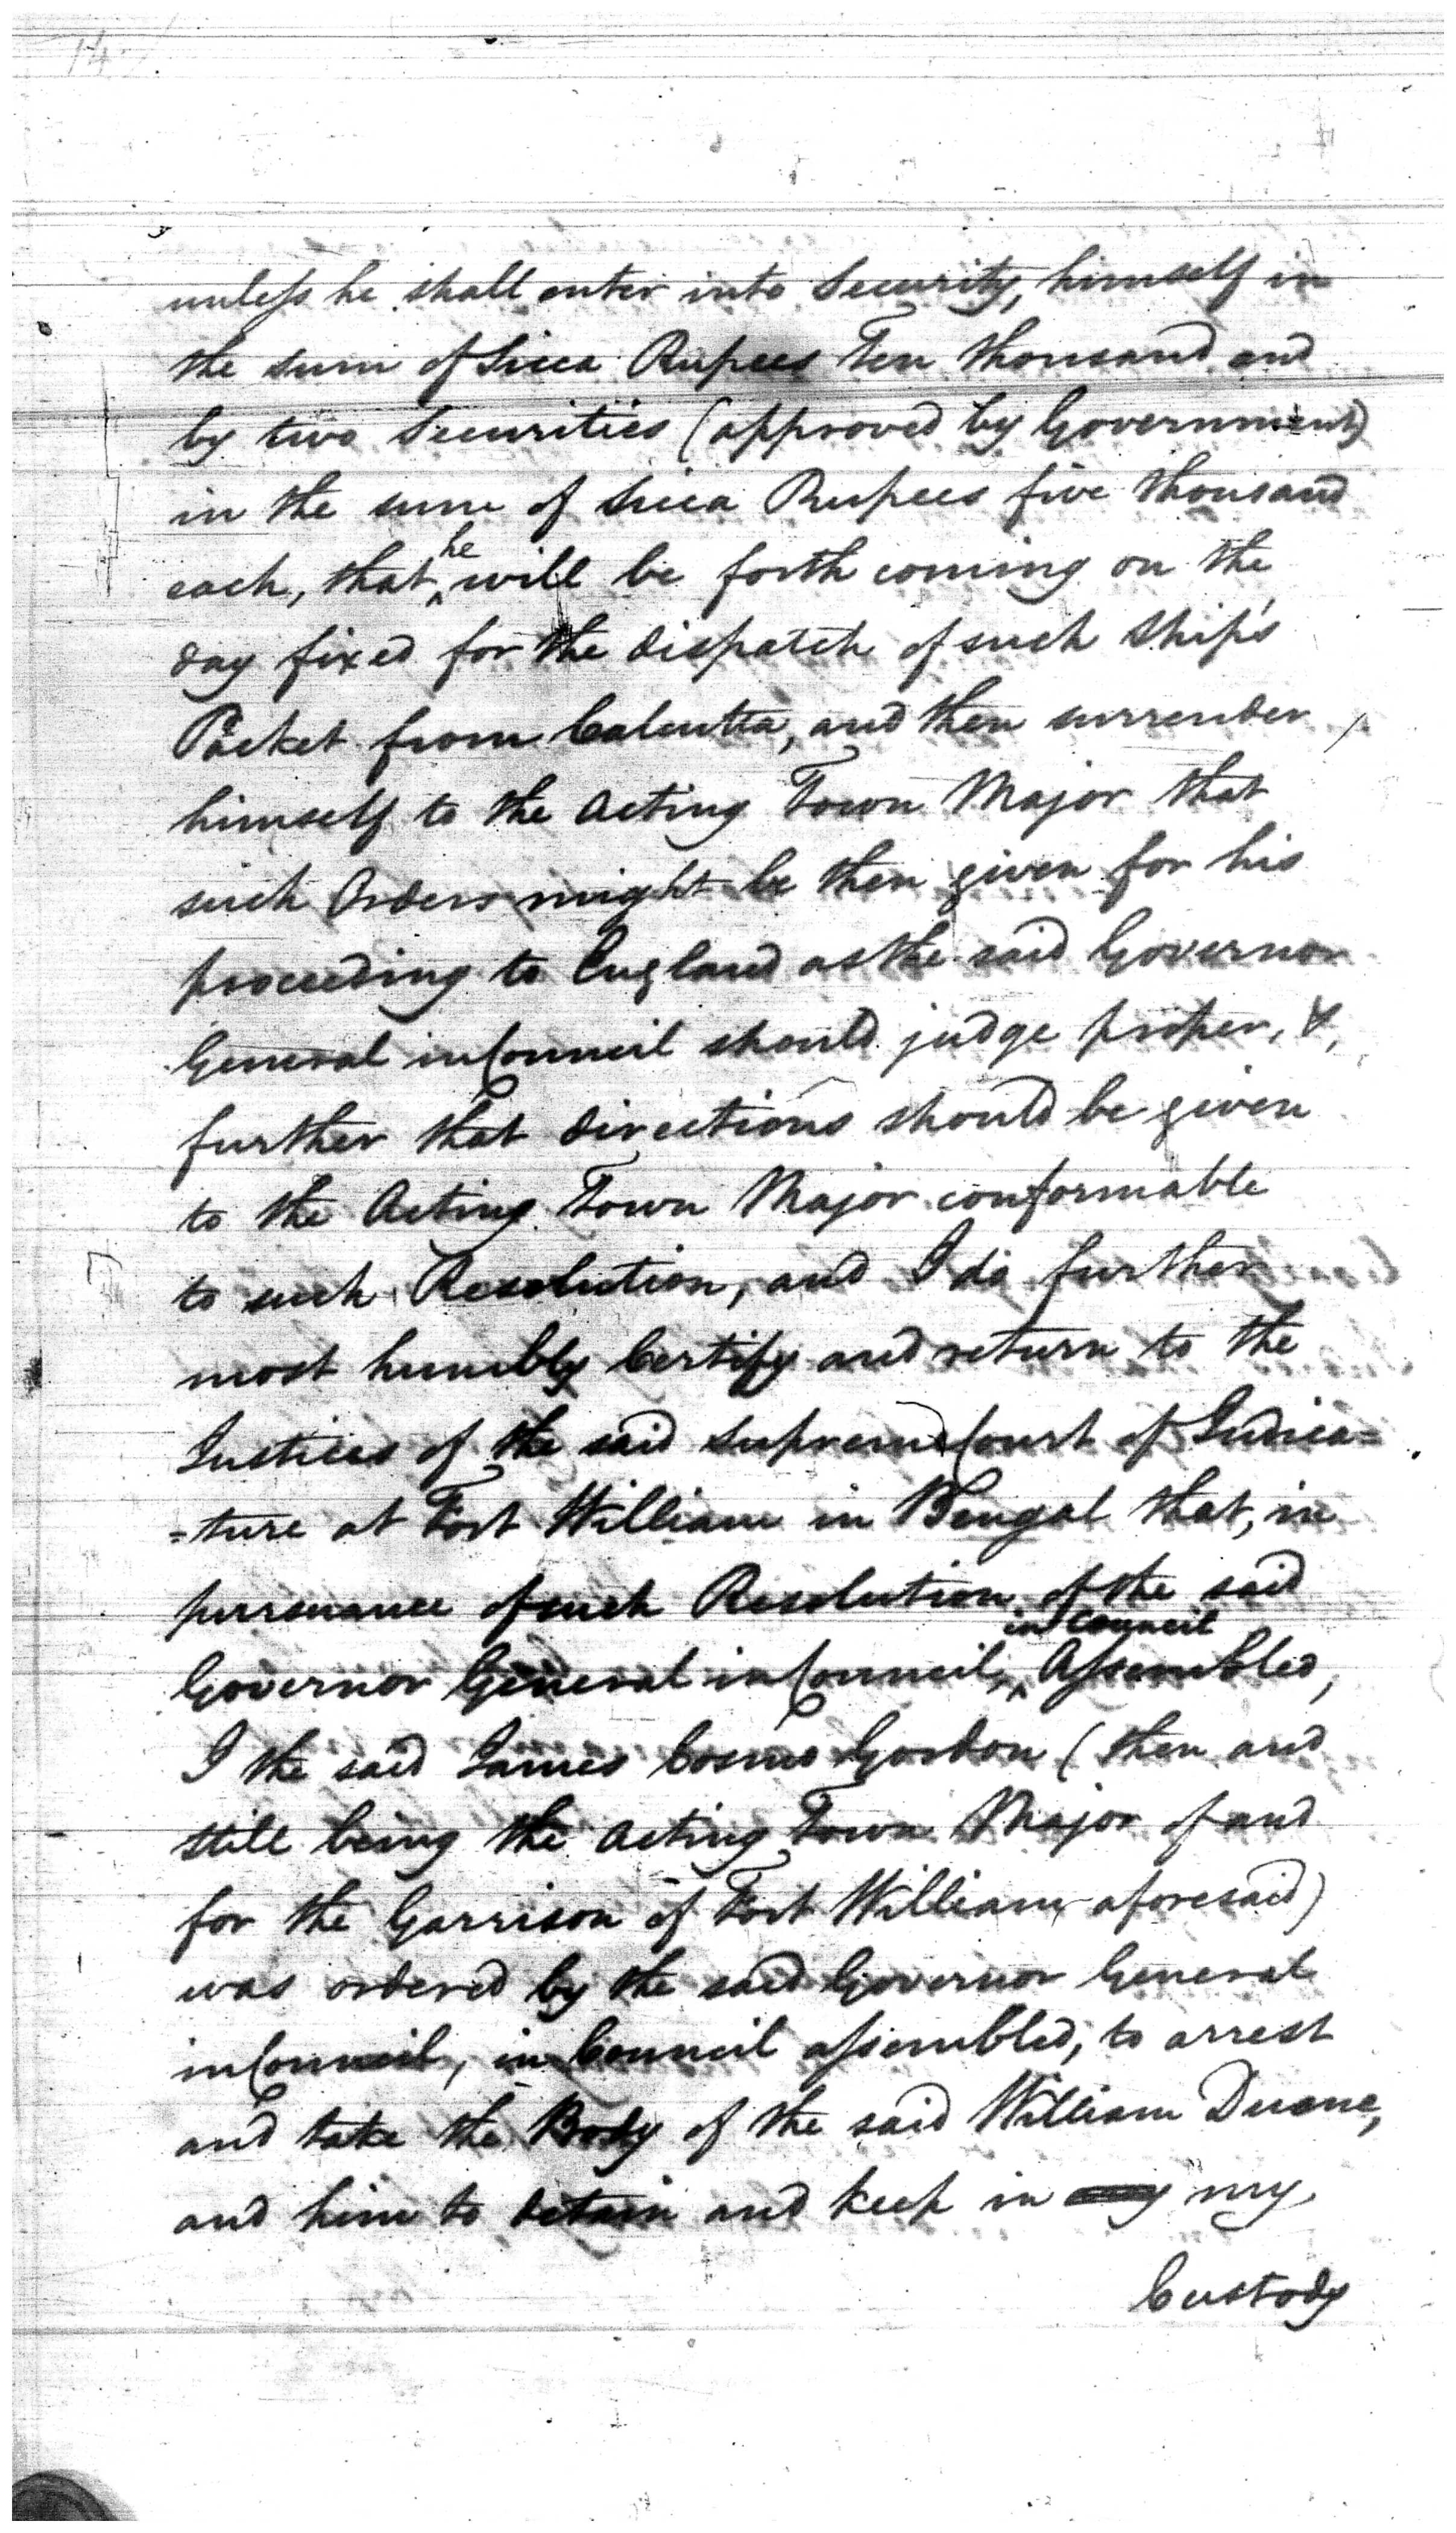 14
unless he shall enter into Security, himself in
the sum of Sicca Rupees Ten thousand and
by two Securities (approved by Government)
in the sum of Sicca Rupees five thousand
each, that he will be forth coming on the
day fixed for the dispatch of such Ship's
Packet from Calcutta, and then surrender
himself to the Acting Town Major that
such Orders might be then given for his
proceeding to England as the said Governor
General in Council should judge proper, &,
further that directions should be given
to the Acting Town Major conformable
to such Resolution, and I do further
most humbly Certify and return to the
Justices of the said Supreme Court of Judica=
=ture at Fort William in Bengal that, in
pursuance of such Resolution of the said
Governor General in Council, in Council Assembled,
I the said James Cosmo Gordon (then and
still being the Acting Town Major of and
for the Garrison of Fort William aforesaid)
was ordered by the said Governor General
in Council, in Council assembled, to arrest
and take the Body of the said William Duane,
and him to detain and keep in my
Custody